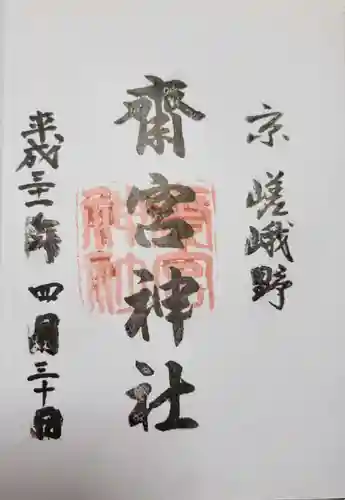 京嵯峨野
齋宮神社
平成三十一年四月三十日